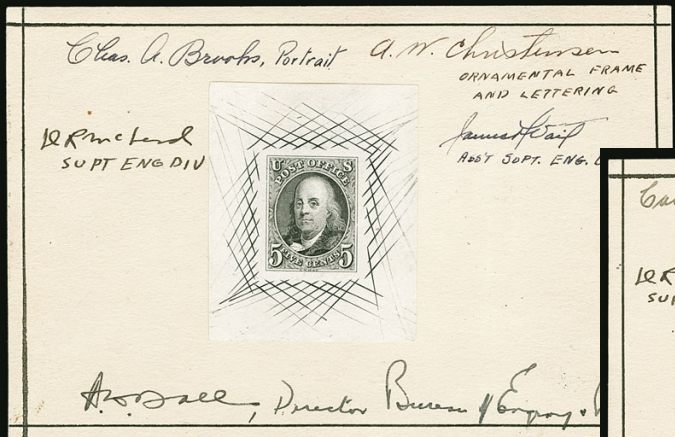 Chas. A. Brooks, Portrait
A. W. Christensen
ORNAMENTAL FRAME
AND LETTERING
SUPT ENG DIV
ASS'T SUPT. ENG.
U S
POST OFFICE
FIVE CENTS
5 5
A. W. Hall, Director Bureau of Engrav. &